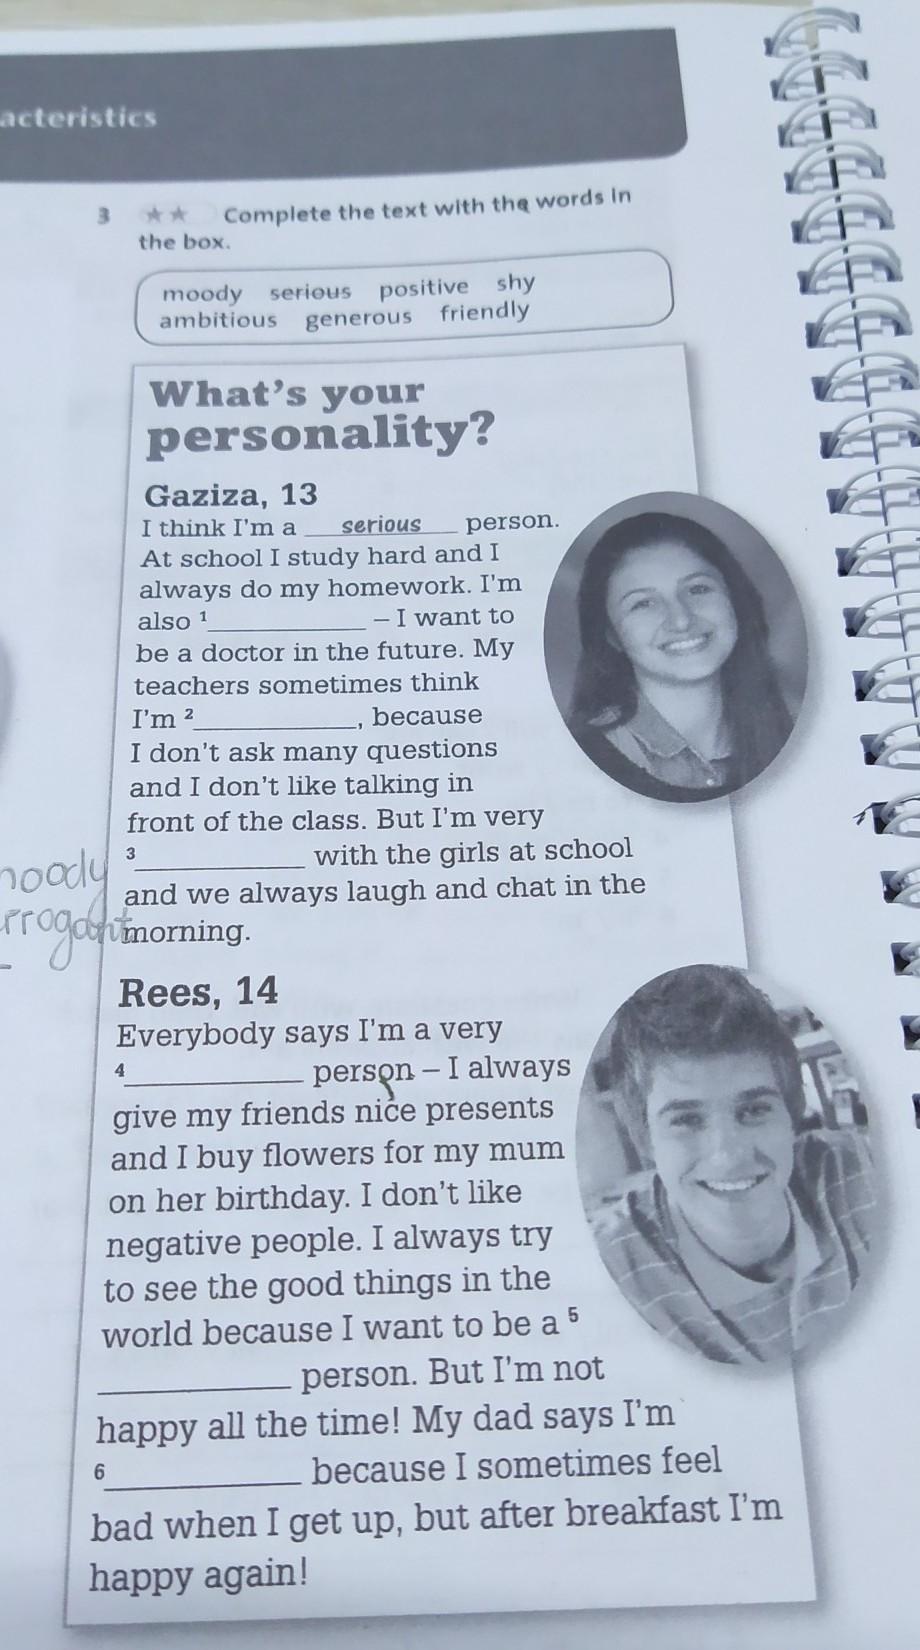 acteristics
3 ★★ Complete the text with the words in
the box.
moody serious positive shy
ambitious generous friendly
What's your
personality?
Gaziza, 13
I think I'm a serious person.
At school I study hard and I
always do my homework. I'm
also 1____________ – I want to
be a doctor in the future. My
teachers sometimes think
I'm 2____________, because
I don't ask many questions
and I don't like talking in
front of the class. But I'm very
3____________ with the girls at school
and we always laugh and chat in the
morning.
oody
rrogant
Rees, 14
Everybody says I'm a very
4____________ person – I always
give my friends nice presents
and I buy flowers for my mum
on her birthday. I don't like
negative people. I always try
to see the good things in the
world because I want to be a 5
____________ person. But I'm not
happy all the time! My dad says I'm
6____________ because I sometimes feel
bad when I get up, but after breakfast I'm
happy again!